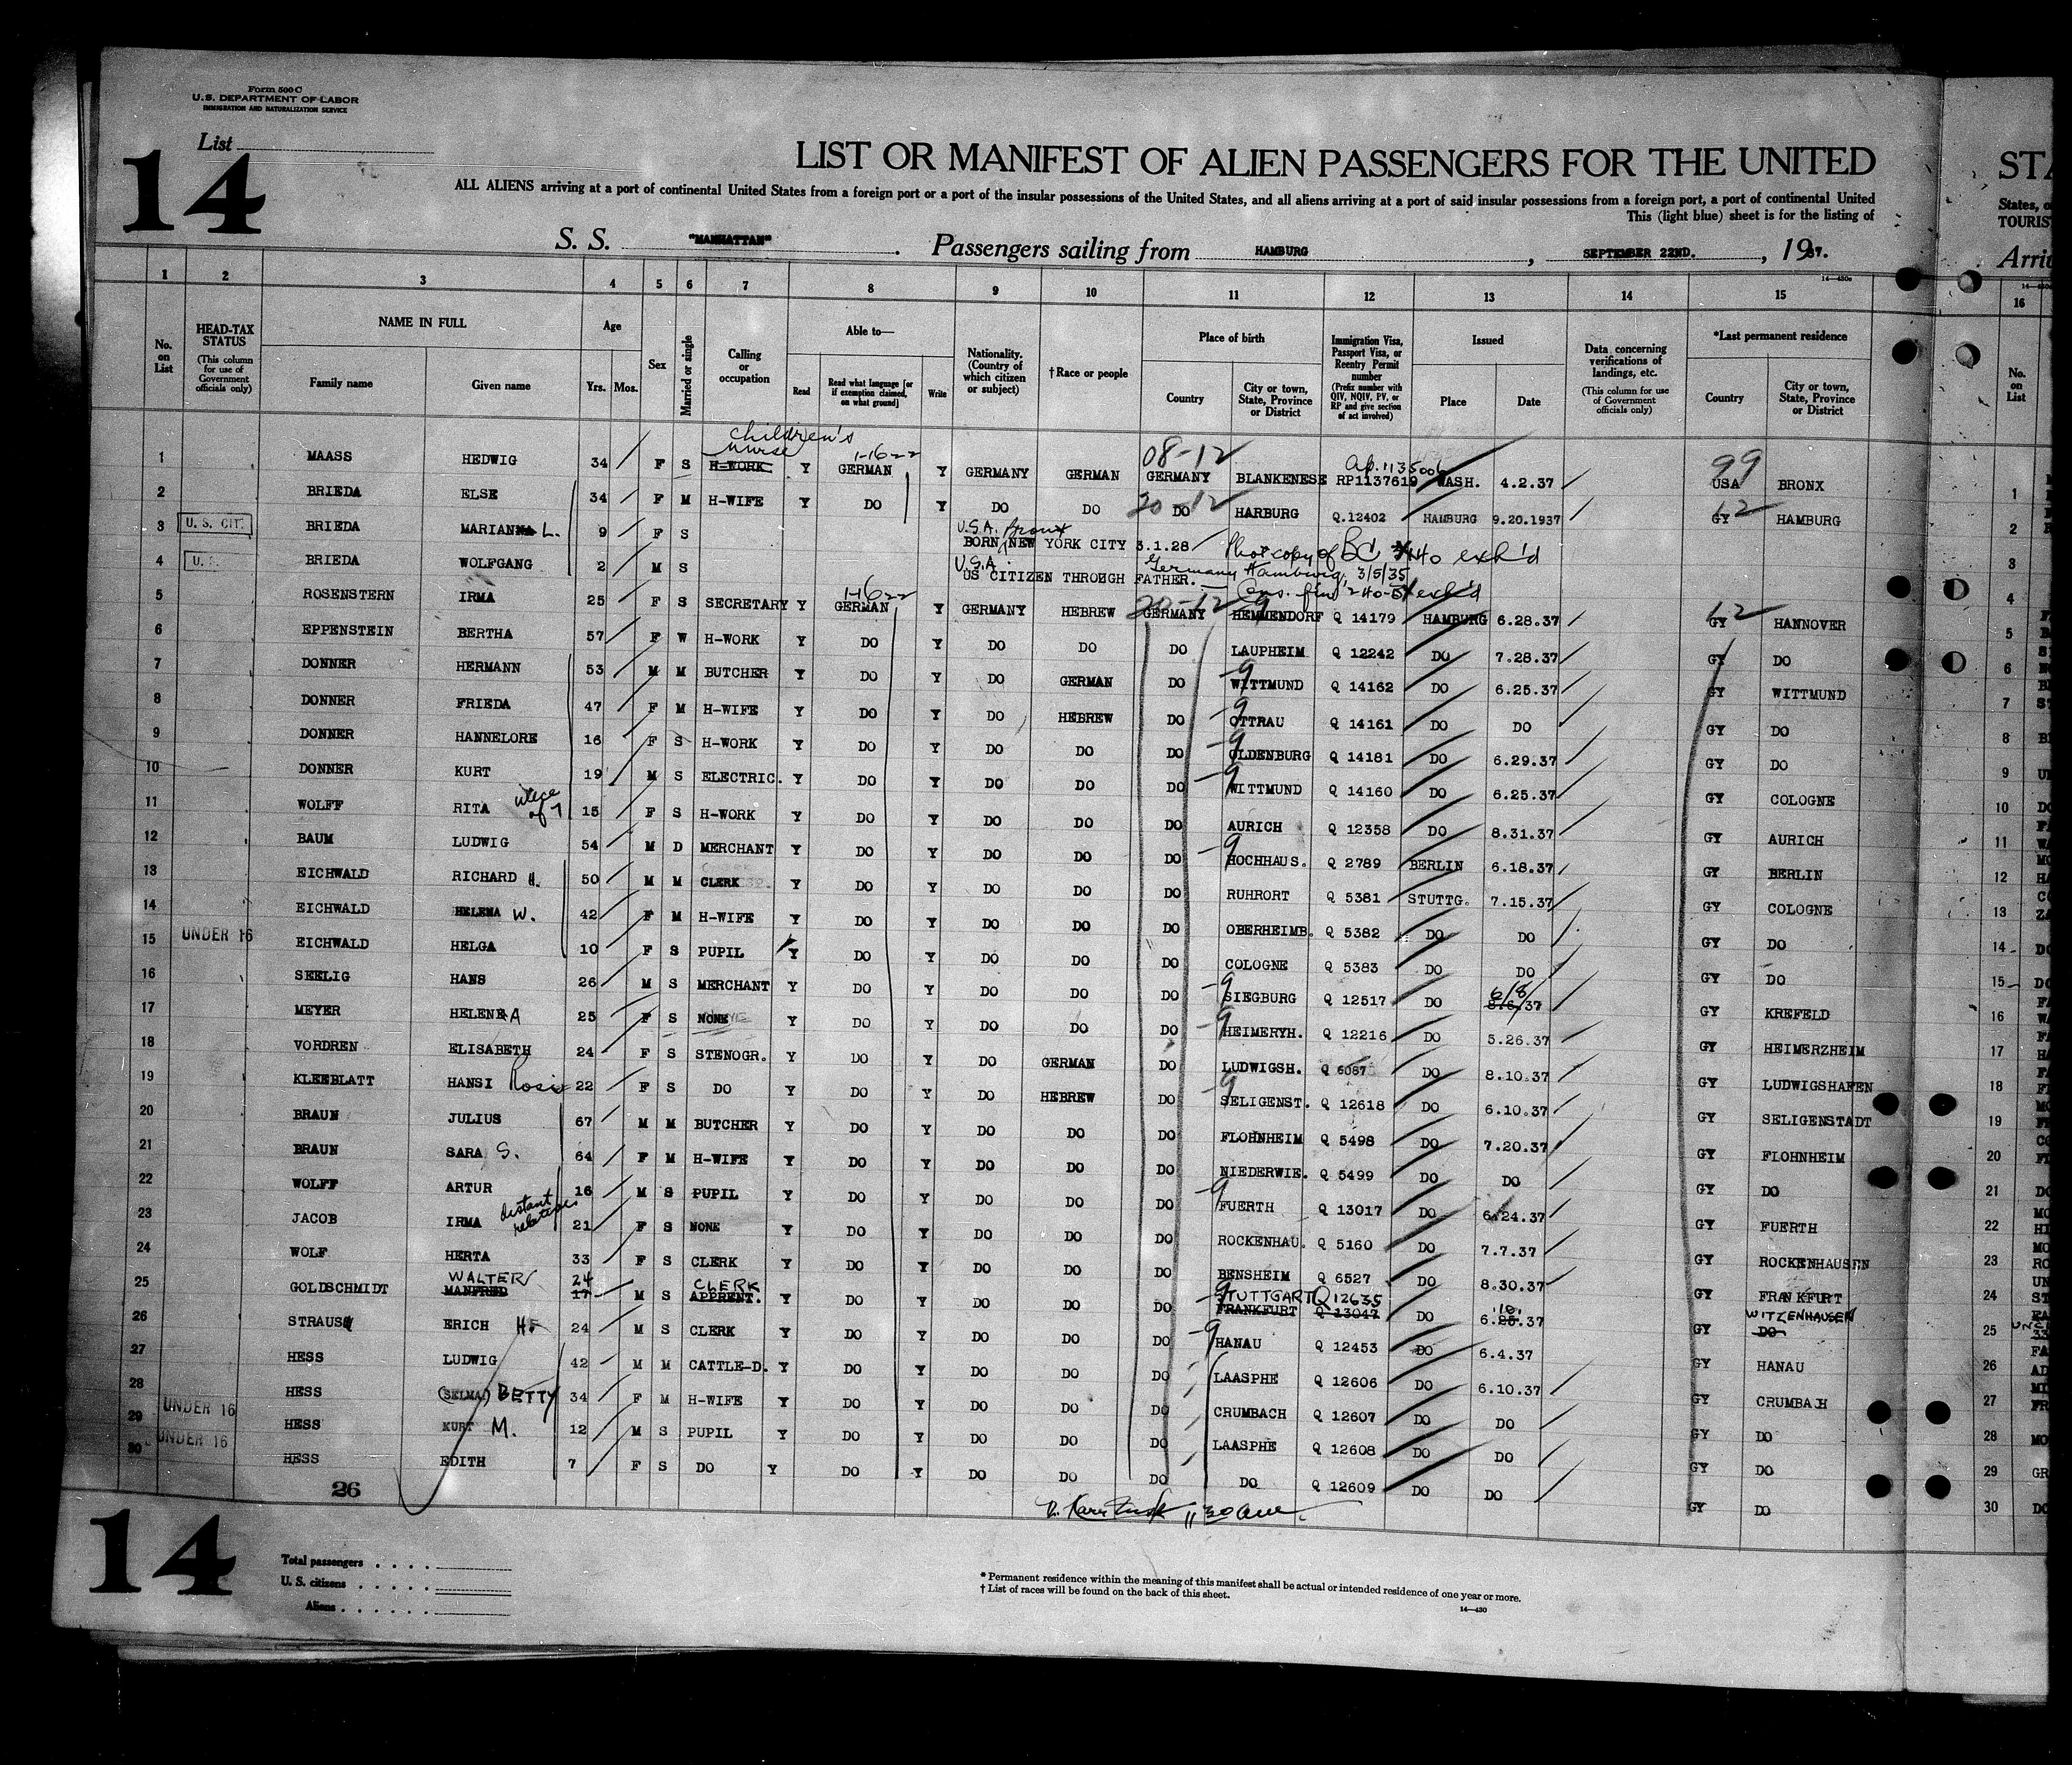 Form 500 C
U.S. DEPARTMENT OF LABOR
IMMIGRATION AND NATURALIZATION SERVICE
List
14
LIST OR MANIFEST OF ALIEN PASSENGERS FOR THE UNITED
STA
ALL ALIENS arriving at a port of continental United States from a foreign port or a port of the insular possessions of the United States, and all aliens arriving at a port of said insular possessions from a foreign port, a port of continental United
States, o
This (light blue) sheet is for the listing of
TOURIST
S. S. "MANHATTAN" Passengers sailing from HAMBURG, SEPTEMBER 22ND., 1937.
Arriv
14—430a
1 2 3 4 5 6 7 8 9 10 11 12 13 14 15 16
No. on List
HEAD-TAX STATUS (This column for use of Government officials only)
NAME IN FULL
Family name Given name
Age
Yrs. Mos.
Sex
Married or single
Calling or occupation
Able to—
Read Read what language [or if exemption claimed, on what ground] Write
Nationality. (Country of which citizen or subject)
†Race or people
Place of birth
Country City or town, State, Province or District
Immigration Visa, Passport Visa, or Reentry Permit number (Prefix number with QIV, NQIV, PV, or RP and give section of act involved)
Issued
Place Date
Data concerning verifications of landings, etc. (This column for use of Government officials only)
*Last permanent residence
Country City or town, State, Province or District
No. on List
children's nurse 1-16-22 08-12 99
1 MAASS HEDWIG 34 F S H-WORK Y GERMAN Y GERMANY GERMAN GERMANY BLANKENESE RP1137619 WASH. 4.2.37 USA BRONX
20-12 62
2 BRIEDA ELSE 34 F M H-WIFE Y DO Y DO DO DO HARBURG Q.12402 HAMBURG 9.20.1937 GY HAMBURG
U.S.A. Bronx
3 U. S. CIT. BRIEDA MARIANNA L. 9 F S BORN NEW YORK CITY 3.1.28 Phot copy of BC exh'd
U.S.A. Germany Hamburg, 3/5/35
4 U.S. BRIEDA WOLFGANG 2 M S US CITIZEN THROUGH FATHER.
1-16-22 20-12 62
5 ROSENSTERN IRMA 25 F S SECRETARY Y GERMAN Y GERMANY HEBREW GERMANY HEMMENDORF Q 14179 HAMBURG 6.28.37 GY HANNOVER
6 EPPENSTEIN BERTHA 57 F W H-WORK Y DO Y DO DO DO LAUPHEIM Q 12242 DO 7.28.37 GY DO
7 DONNER HERMANN 53 M M BUTCHER Y DO Y DO GERMAN DO WITTMUND Q 14162 DO 6.25.37 GY WITTMUND
8 DONNER FRIEDA 47 F M H-WIFE Y DO Y DO HEBREW DO OTTRAU Q 14161 DO DO GY DO
9 DONNER HANNELORE 16 F S H-WORK Y DO Y DO DO DO OLDENBURG Q 14181 DO 6.29.37 GY DO
10 DONNER KURT 19 M S ELECTRIC. Y DO Y DO DO DO WITTMUND Q 14160 DO 6.25.37 GY COLOGNE
11 WOLFF RITA niece of 7 15 F S H-WORK Y DO Y DO DO DO AURICH Q 12358 DO 8.31.37 GY AURICH
12 BAUM LUDWIG 54 M D MERCHANT Y DO Y DO DO DO HOCHHAUS. Q 2789 BERLIN 6.18.37 GY BERLIN
13 EICHWALD RICHARD H. 50 M M CLERK Y DO Y DO DO DO RUHRORT Q 5381 STUTTG. 7.15.37 GY COLOGNE
14 EICHWALD HELENA W. 42 F M H-WIFE Y DO Y DO DO DO OBERHEIMB. Q 5382 DO DO GY DO
15 UNDER 16 EICHWALD HELGA 10 F S PUPIL Y DO Y DO DO DO COLOGNE Q 5383 DO DO GY DO
6/8/
16 SEELIG HANS 26 M S MERCHANT Y DO Y DO DO DO SIEGBURG Q 12517 DO 8.6.37 GY KREFELD
17 MEYER HELENE A 25 F S NONE Y DO Y DO DO DO HEIMERYH. Q 12216 DO 5.26.37 GY HEIMERZHEIM
18 VORDREN ELISABETH 24 F S STENOGR. Y DO Y DO GERMAN DO LUDWIGSH. Q 6087 DO 8.10.37 GY LUDWIGSHAFEN
19 KLEEBLATT HANSI Rosi 22 F S DO Y DO Y DO HEBREW DO SELIGENST. Q 12618 DO 6.10.37 GY SELIGENSTADT
20 BRAUN JULIUS 67 M M BUTCHER Y DO Y DO DO DO FLOHNHEIM Q 5498 DO 7.20.37 GY FLOHNHEIM
21 BRAUN SARA S. 64 F M H-WIFE Y DO Y DO DO DO NIEDERWIE. Q 5499 DO DO GY DO
22 WOLFF ARTUR 16 M S PUPIL Y DO Y DO DO DO FUERTH Q 13017 DO 6.24.37 GY FUERTH
distant relatives
23 JACOB IRMA 21 F S NONE Y DO Y DO DO DO ROCKENHAU. Q 5160 DO 7.7.37 GY ROCKENHAUSEN
24 WOLF HERTA 33 F S CLERK Y DO Y DO DO DO BENSHEIM Q 6527 DO 8.30.37 GY FRANKFURT
WALTER 24 CLERK STUTTGART Q 12635 10. WITZENHAUSEN
25 GOLDSCHMIDT MANFRED 17 M S APPRENT. Y DO Y DO DO DO FRANKFURT Q 13047 DO 6.25.37 GY DO
26 STRAUSS ERICH H. 24 M S CLERK Y DO Y DO DO DO HANAU Q 12453 DO 6.4.37 GY HANAU
27 HESS LUDWIG 42 M M CATTLE-D. Y DO Y DO DO DO LAASPHE Q 12606 DO 6.10.37 GY CRUMBACH
28 HESS (SELMA) BETTY 34 F M H-WIFE Y DO Y DO DO DO CRUMBACH Q 12607 DO DO GY DO
29 UNDER 16 HESS KURT M. 12 M S PUPIL Y DO Y DO DO DO LAASPHE Q 12608 DO DO GY DO
30 UNDER 16 HESS EDITH 7 F S DO Y DO Y DO DO DO DO Q 12609 DO DO GY DO
26
14
Total passengers
U. S. citizens
Aliens
* Permanent residence within the meaning of this manifest shall be actual or intended residence of one year or more.
† List of races will be found on the back of this sheet.
14—430